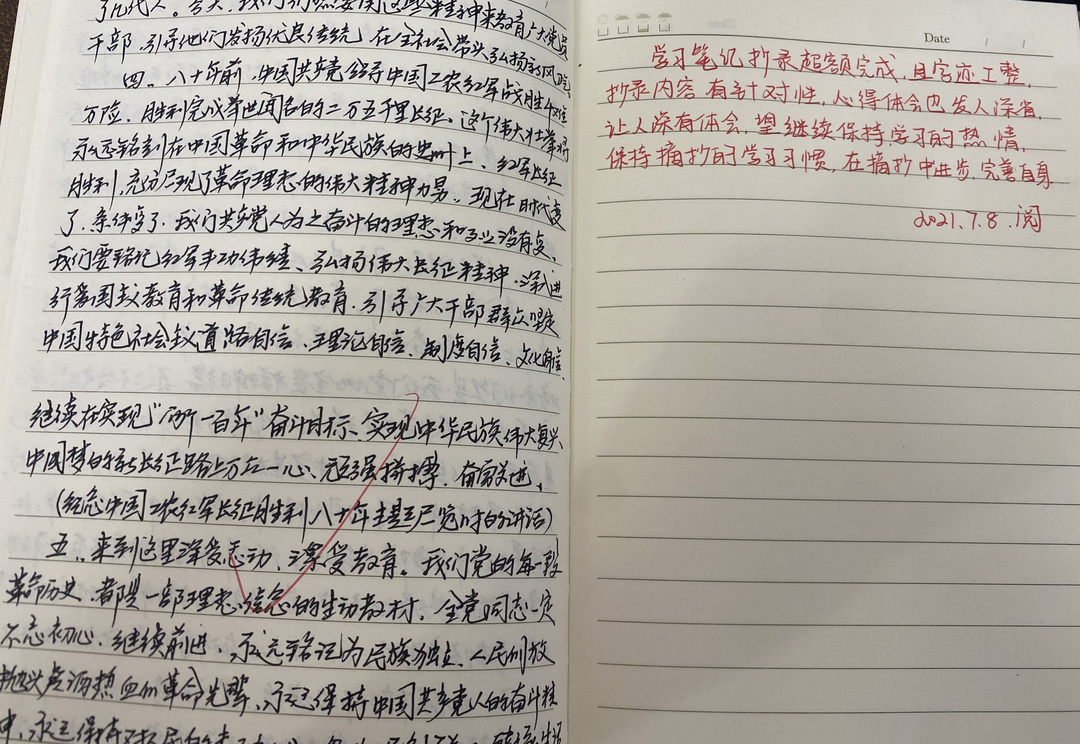 了几代人。今天，我们仍然要用这些精神来教育广大党员
干部，引导他们发扬优良传统，在全社会带头弘扬新风
四、八十年前，中国共产党领导中国工农红军战胜千难
万险，胜利完成举世闻名的二万五千里长征。这个伟大壮举将
永远铭刻在中国革命和中华民族的史册上。红军长征
胜利，充分展现了革命理想的伟大精神力量。现在时代变
了，条件变了，我们共产党人为之奋斗的理想和事业没有变。
我们要铭记红军丰功伟绩、弘扬伟大长征精神，深入进
行爱国主义教育和革命传统教育，引导广大干部群众坚定
中国特色社会主义道路自信、理论自信、制度自信、文化自信，
继续在实现“两个一百年”奋斗目标、实现中华民族伟大复兴
中国梦的新长征路上万众一心、顽强拼搏、奋勇前进。
（纪念中国工农红军长征胜利八十年主题展览时的讲话）
五、来到这里深受感动、深受教育。我们党的每一段
革命历史，都是一部理想信念的生动教材，全党同志一定
不忘初心、继续前进，永远铭记为民族独立、人民解放
抛头颅洒热血的革命先辈，永远保持中国共产党人的奋斗精
神，永远保持对人民的
Date
学习笔记抄录超额完成，且字迹工整，
抄录内容有针对性，心得体会也发人深省，
让人深有体会，望继续保持学习的热情，
保持摘抄的学习习惯，在摘抄中进步，完善自身
2021.7.8.阅